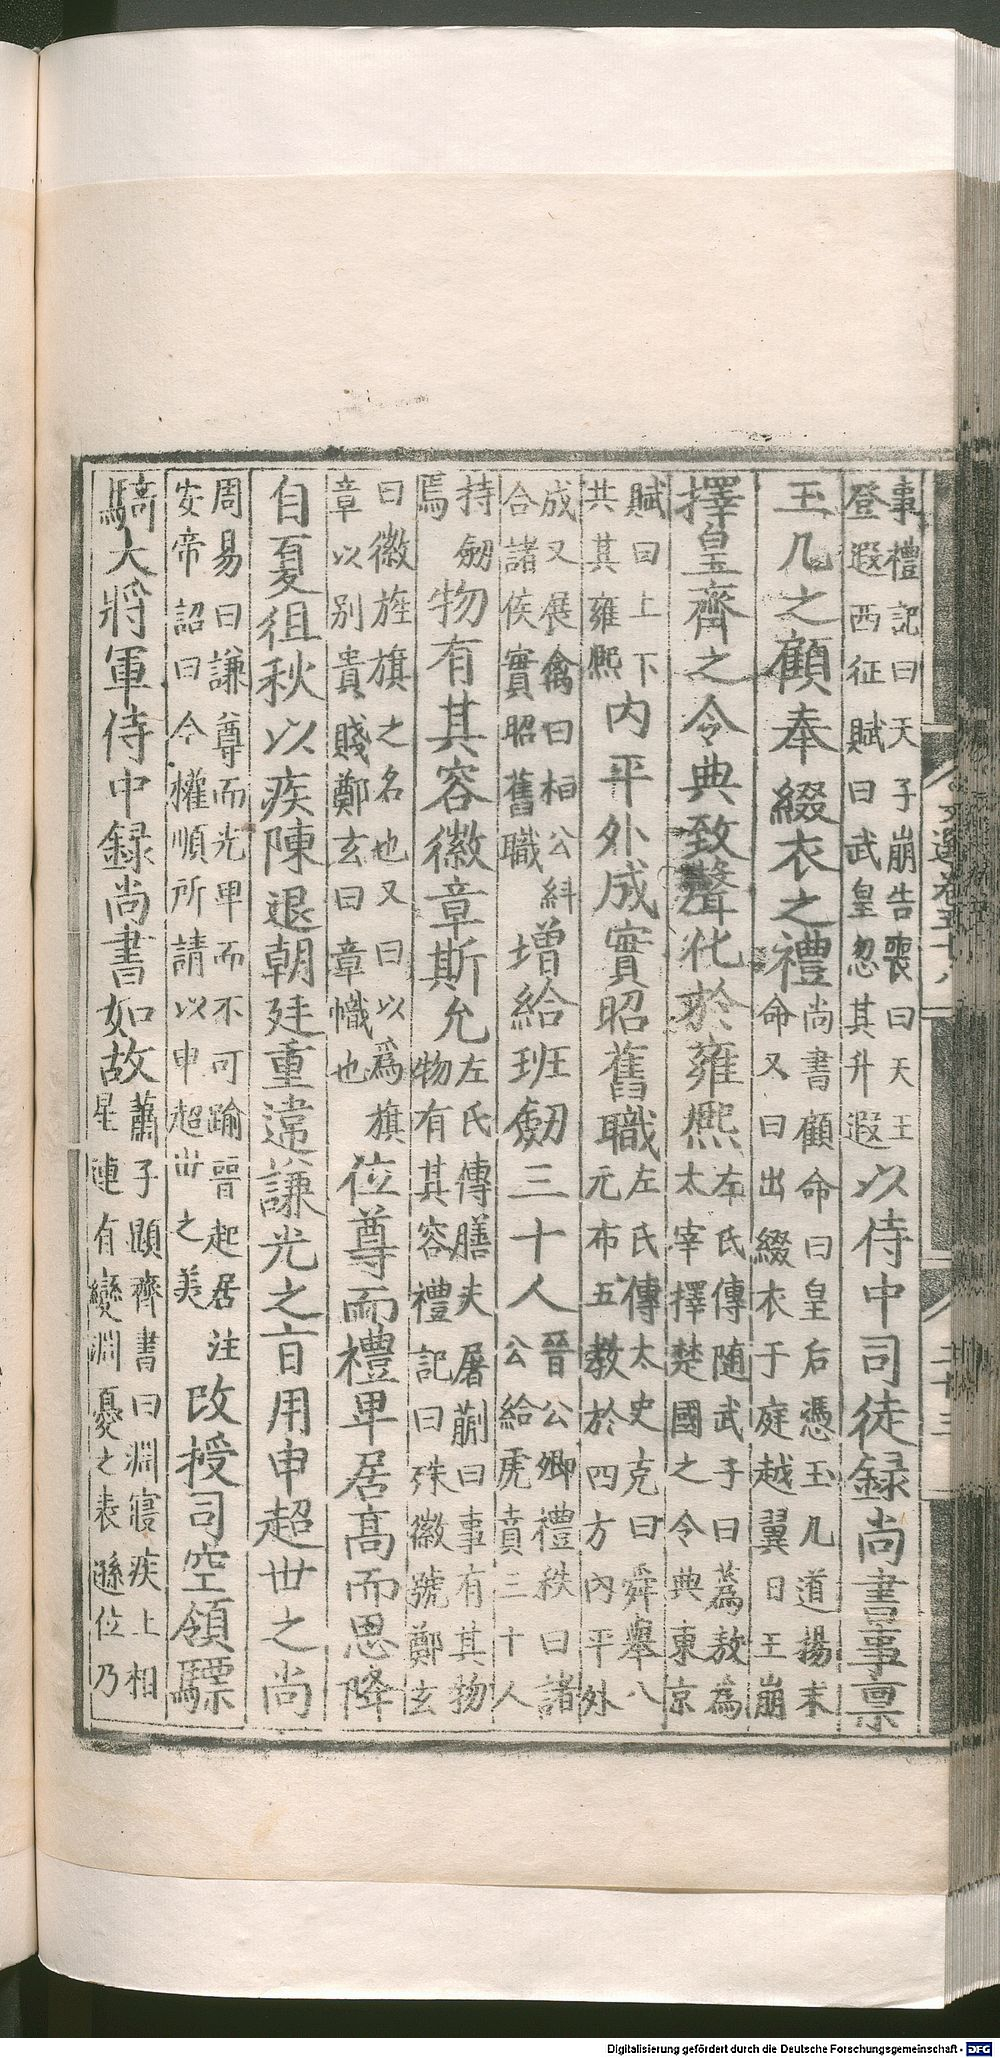 事禮記曰天子崩告喪曰天王
登遐西征賦曰武皇忽其升遐以侍中司徒録尚書事禀
玉几之顧奉綴衣之禮尚書顧命曰皇后憑玉几道揚末
命又曰出綴衣于庭越翼日王崩
擇皇齊之令典致聲化於雍熙左氏傳随武子曰蒍敖為
太宰擇楚國之令典東京
賦曰上下
共其雍熙内平外成實昭舊職左氏傳太史克曰舜舉八
元布五教於四方内平外
成又展禽曰桓公糾
合諸侯實昭舊職增給班劒三十人晉公卿禮秩曰諸
公給虎賁三十人
持劒
焉物有其容徽章斯允左氏傳膳夫屠蒯曰事有其物
物有其容禮記曰殊徽號鄭玄
曰徽旌旗之名也又曰以為旗
章以别貴賤鄭玄曰章幟也位尊而禮卑居髙而思降
自夏徂秋以疾陳退朝廷重違謙光之旨用申超世之尚
周易曰謙尊而光卑而不可踰晉起居注
安帝詔曰今權順所請以申超世之美改授司空領驃
騎大將軍侍中録尚書如故蕭子顯齊書曰淵寢疾上相
星連有變淵憂之表遜位乃
文選卷五十八
二十三
Digitalisierung gefördert durch die Deutsche Forschungsgemeinschaft - DFG